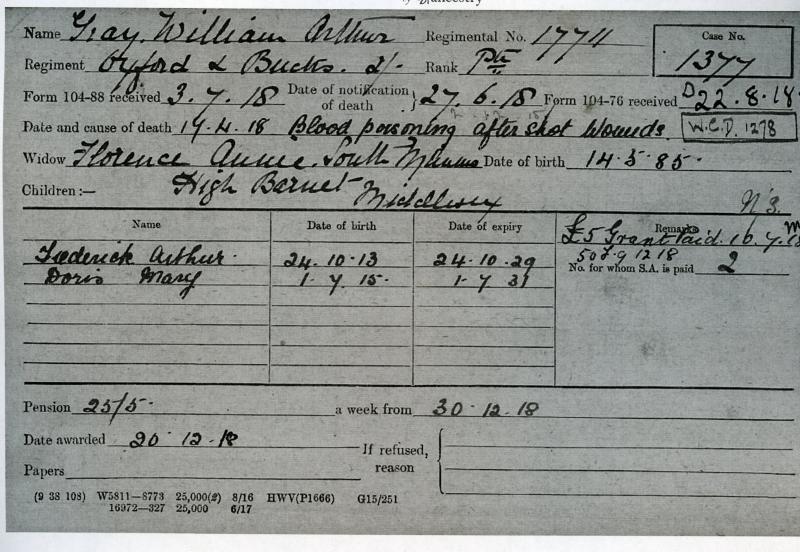 Name Gray. William Arthur Regimental No. 17711 Case No.
1377
Regiment Oxford & Bucks. 2/- Rank Pte
Form 104-88 received 3.7.18 Date of notification of death } 27.6.18 Form 104-76 received D22.8.18
Date and cause of death 19.4.18 Blood poisoning after shot wounds. W.C.D. 1278
Widow Florence Annie. South Mimms Date of birth 14.5.85.
Children :— High Barnet Middlesex
N'3.
Name Date of birth Date of expiry Remarks
£5 Grant Paid. 10.7.18
Frederick Arthur. 24.10.13 24.10.29
No. for whom S.A. is paid 2
Doris Mary 1.7.15. 1.7.31
Pension 25/5. a week from 30.12.18
Date awarded 20.12.18 If refused, reason
Papers
(9 38 108) W5811—8773 25,000(2) 8/16 HWV(P1666) G15/251
16972—327 25,000 6/17